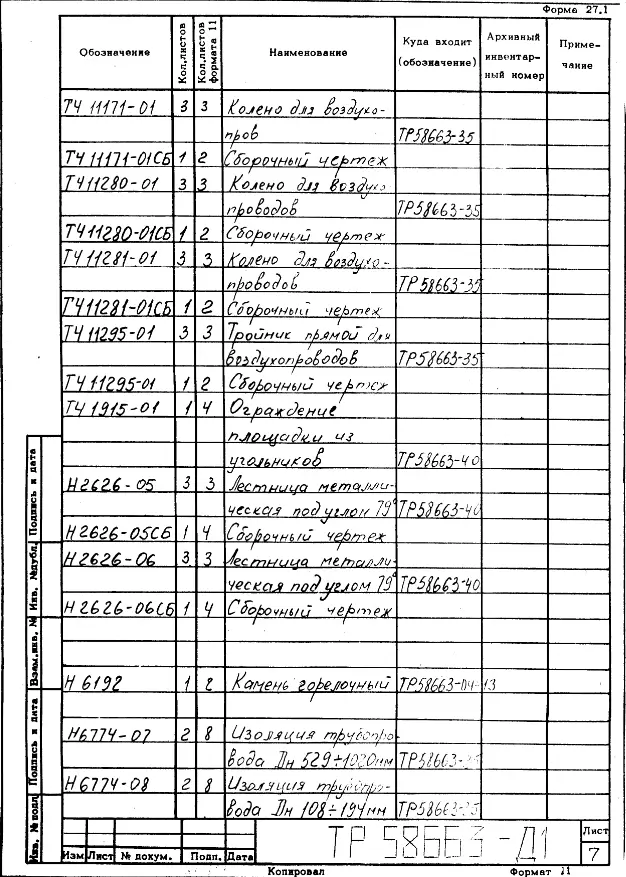 Форма 27.1
Обозначение Кол.листов Кол.листов формата 11 Наименование Куда входит (обозначение) Архивный инвентарный номер Примечание
ТЧ 11171-01 3 3 Колено для воздухо-
пров ТР58663-35
ТЧ 11171-01СБ 1 2 Сборочный чертеж
ТЧ11280-01 3 3 Колено для воздухо
проводов ТР58663-35
ТЧ11280-01СБ 1 2 Сборочный чертеж
ТЧ11281-01 3 3 Колено для воздухо-
проводов ТР58663-35
ТЧ11281-01СБ 1 2 Сборочный чертеж
ТЧ 11295-01 3 3 Тройник прямой для
воздухопроводов ТР58663-35
ТЧ 11295-01 1 2 Сборочный чертеж
ТЧ 1915-01 1 4 Ограждение
площадки из
угольников ТР58663-40
Н2626-05 3 3 Лестница металли-
ческая под углом 79° ТР58663-40
Н2626-05СБ 1 4 Сборочный чертеж
Н2626-06 3 3 Лестница металли-
ческая под углом 79° ТР58663-40
Н2626-06СБ 1 4 Сборочный чертеж
Н 6192 1 2 Камень горелочный ТР58663-ПЧ-13
Н6774-07 2 8 Изоляция трубопро-
вода Дн 529÷1020мм ТР58663-35
Н6774-08 2 8 Изоляция трубопро-
вода Дн 108÷194мм ТР58663-35
Инв. № подл. Подпись и дата Взам.инв. № Инв. №дубл. Подпись и дата
Изм Лист № докум. Подп. Дата
ТР 58663-Д1
Лист
7
Копировал Формат 11